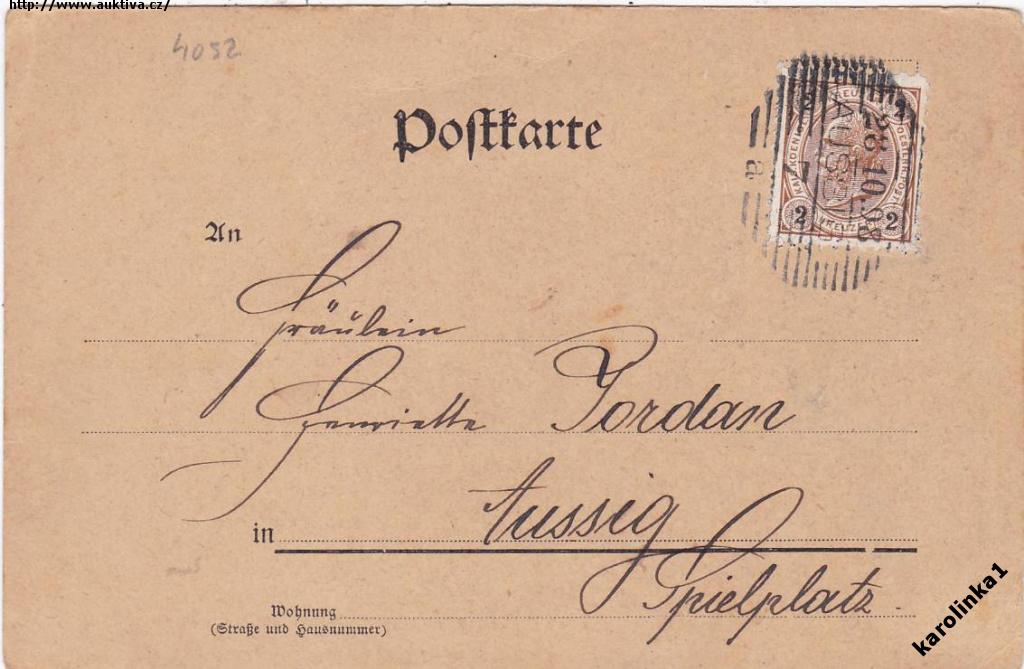 http://www.auktiva.cz/
4052
Postkarte
28 10 98
AUSSIG
a
2 2
2 KREUZER 2
An
Fräulein
Henriette Jordan
in Aussig
Spielplatz.
Wohnung
(Straße und Hausnummer)
karolinka1